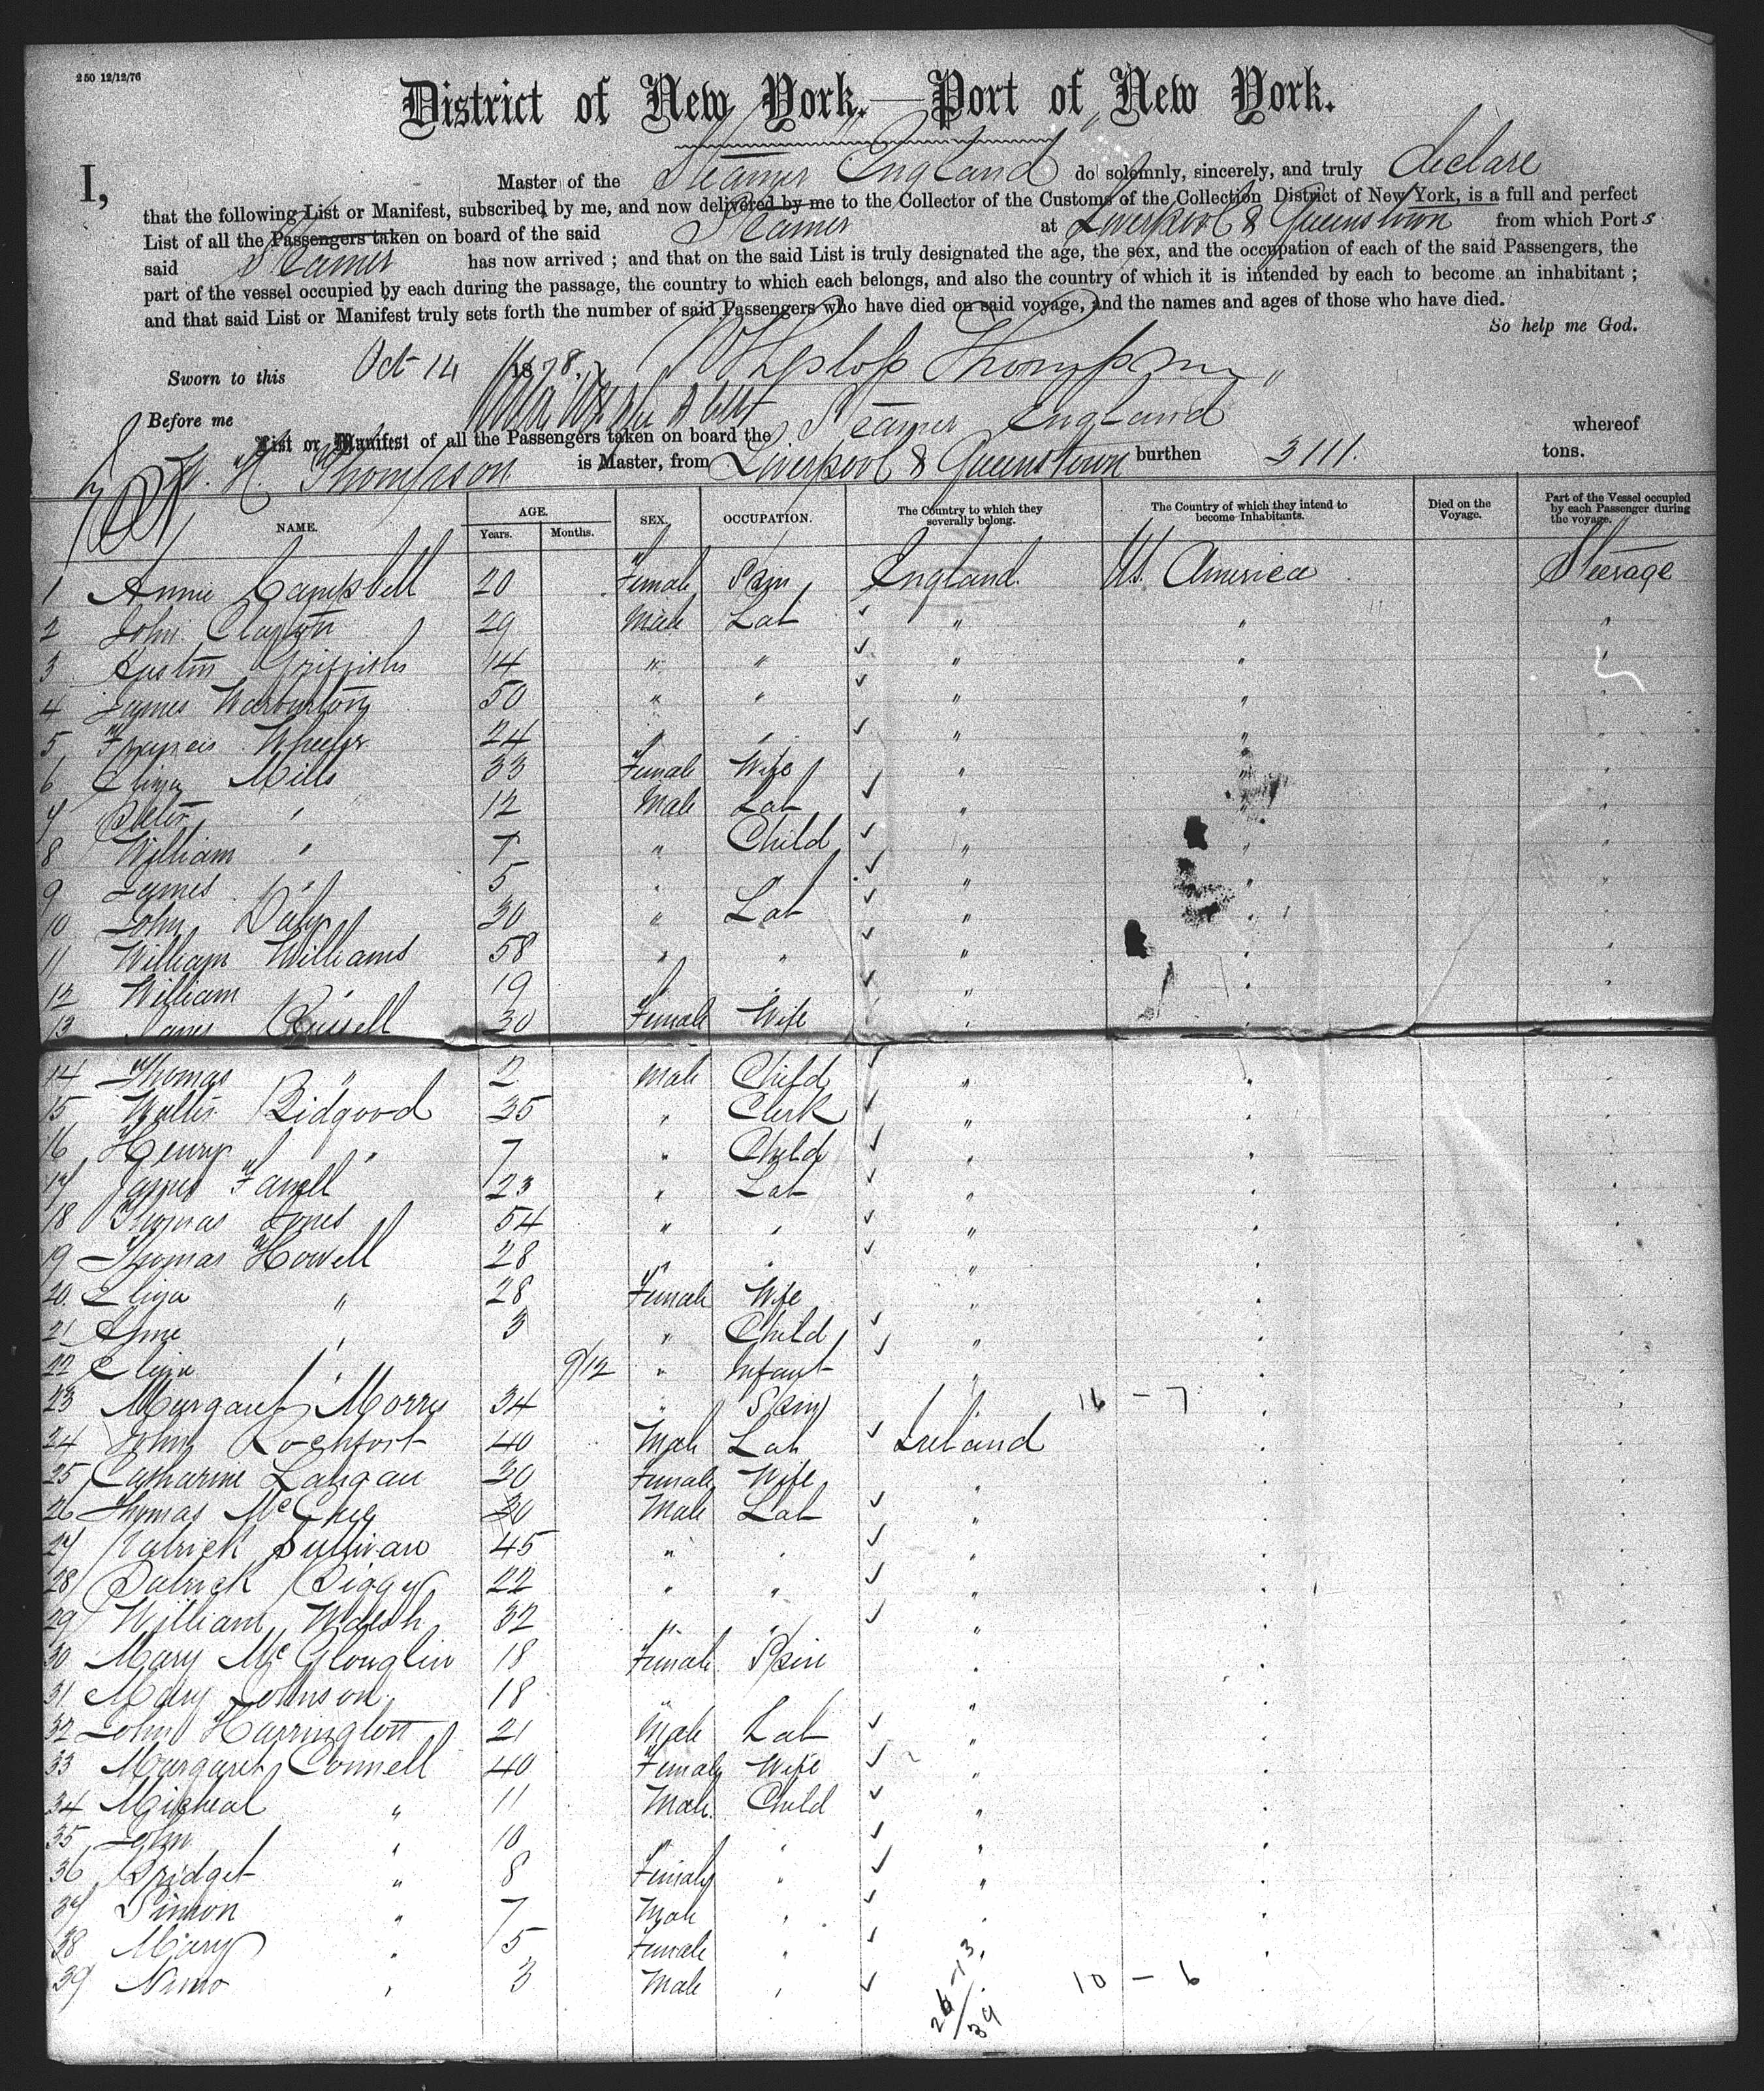 250 12/12/76
District of New York.—Port of New York.
I, Master of the Steamer "England" do solemnly, sincerely, and truly declare
that the following List or Manifest, subscribed by me, and now delivered by me to the Collector of the Customs of the Collection District of New York, is a full and perfect
List of all the Passengers taken on board of the said Steamer at Liverpool & Queenstown from which Ports
said Steamer has now arrived ; and that on the said List is truly designated the age, the sex, and the occupation of each of the said Passengers, the
part of the vessel occupied by each during the passage, the country to which each belongs, and also the country of which it is intended by each to become an inhabitant ;
and that said List or Manifest truly sets forth the number of said Passengers who have died on said voyage, and the names and ages of those who have died.
So help me God.
Sworn to this Oct 14 1878. Heslop Thompson
Before me
List or Manifest of all the Passengers taken on board the Steamer England whereof
H. Thompson is Master, from Liverpool & Queenstown burthen 3111. tons.
NAME. AGE. Years. Months. SEX. OCCUPATION. The Country to which they severally belong. The Country of which they intend to become Inhabitants. Died on the Voyage. Part of the Vessel occupied by each Passenger during the voyage.
1 Annie Campbell 20 Female Spin England U.S. America Steerage
2 John Clayton 29 Male Lab " " "
3 Austin Griffiths 14 " " " " "
4 James Warburton 50 " " " " "
5 Francis Wheeler 24 " " " " "
6 Eliza Mills 33 Female Wife " " "
7 Peter " 12 Male Lab " " "
8 William " 7 " Child " " "
9 James " 5 " " " "
10 John Daly 30 " Lab " " "
11 William Williams 58 " " " " "
12 William " 19 " " " "
13 Russell 30 Female Wife " " "
14 Thomas " 2 Male Child " " "
15 Walter Bidgood 35 " Clerk " " "
16 Henry " 7 " Child " " "
17 James Farrell 23 " Lab " " "
18 Thomas Jones 54 " " " " "
19 Thomas Howell 28 " " " " "
20 Eliza " 28 Female Wife " " "
21 Anne " 3 " Child " " "
22 Eliza " 9/12 " Infant " " "
23 Margaret Morris 34 " Spin 16 - 7 " "
24 John Rochfort 40 Male Lab Ireland " "
25 Catharine Langan 30 Female Wife " " "
26 Thomas Male Lab " " "
27 Patrick Sullivan 45 " " " " "
28 Patrick 22 " " " " "
29 William Walsh 32 " " " " "
30 Mary McGloughlin 18 Female Spin " " "
31 Mary Johnson 18 " " " "
32 John Harrington 21 Male Lab " " "
33 Margaret Connell 40 Female Wife " " "
34 Micheal " 11 Male Child " " "
35 John " 10 " " " "
36 Bridget " 8 Female " " " "
37 Simon " 7 Male " " " "
38 Mary " 5 Female " " "
39 " 3 Male " 10 - 6
26-13
39